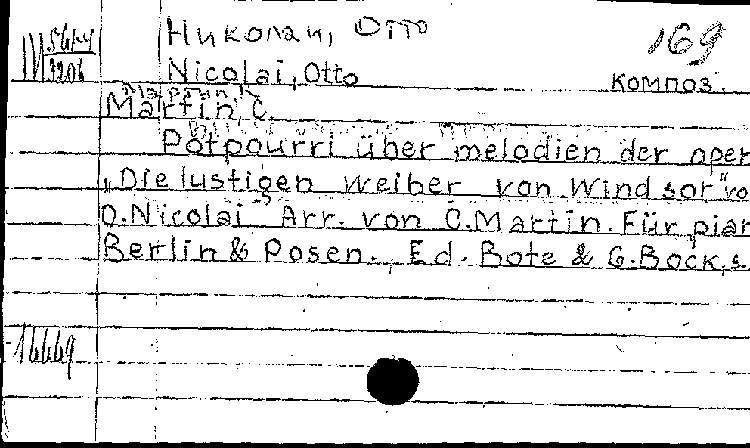 Николаи, Отто
169
Nicolai, Otto
композ.
Martin C.
Potpourri über melodien der oper
„Die lustigen weiber von Windsor" vo
O. Nicolai Arr. von C. Martin. Für pian
Berlin & Posen., Ed. Bote & G. Bock, s.
16669